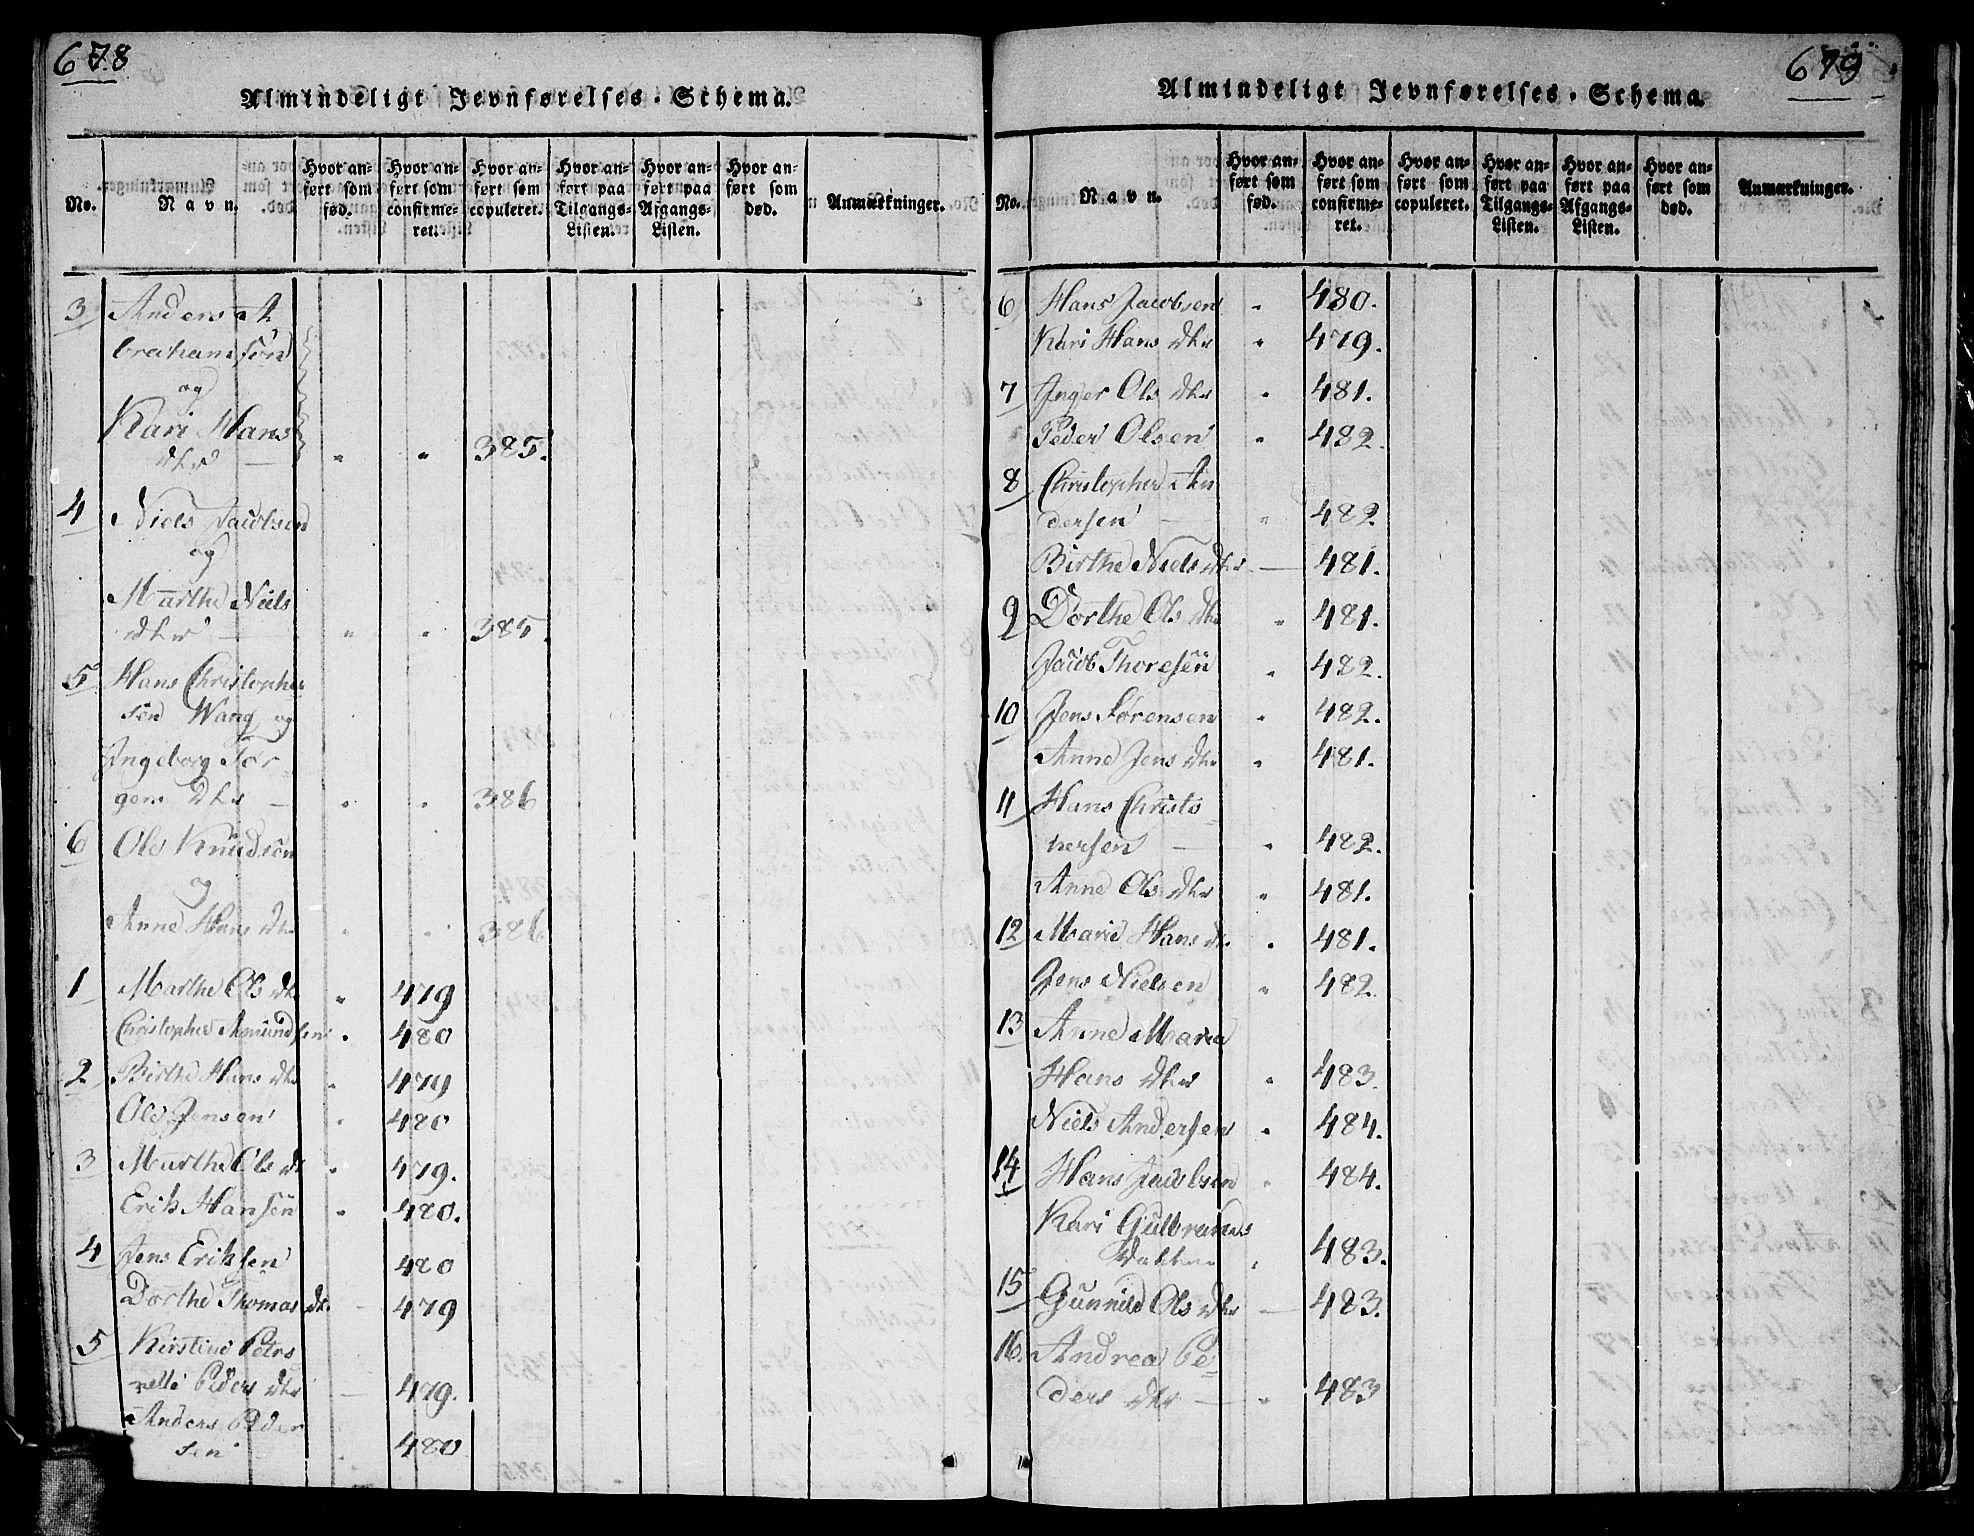 678
Almindeligt Jevnførelses-Schema.
No.
Navn.
Hvor an-
ført som
fød.
Hvor an-
ført som
confirme-
ret.
Hvor an-
ført som
copuleret.
Hvor an-
ført paa
Tilgangs-
Listen.
Hvor an-
ført paa
Afgangs-
Listen.
Hvor an-
ført som
død.
Anmærkninger.
3 Anders A
brahamsøn
og
Kari Hans
dtr — " " 385.
4 Niels Jacobsen
og
Marthe Niels
dtr — " " 385.
5 Hans Christopher
sen Wang og
Ingeborg Jør-
gens dtr — " " 386
6 Ole Knudsøn
og
Anne Hans dtr " " 386
1 Marthe Ols dtr " 479
Christopher Amundsen " 480
2 Birthe Hans dtr " 479
Ole Jensen " 480
3 Marthe Ols dtr " 479.
Erik Hansen " 480.
4 Jens Eriksen 480
Dorthe Thomas dtr. — 479
5 Kirstine Petro
nelle Peders dtr — 479.
Anders Peder
sen " 480
679
Almindeligt Jevnførelses-Schema.
No.
Navn.
Hvor an-
ført som
fød.
Hvor an-
ført som
confirme-
ret.
Hvor an-
ført som
copuleret.
Hvor an-
ført paa
Tilgangs-
Listen.
Hvor an-
ført paa
Afgangs-
Listen.
Hvor an-
ført som
død.
Anmærkninger.
6 Hans Jacobsen " 480.
Kari Hans dtr " 479.
7 Inger Ols dtr " 481.
Peder Olsen " 482.
8 Christopher An
dersen — " 482
Birthe Niels dtr — 481.
9 Dorthe Ols dtr " 481.
Jacob Thoresen " 482.
10 Jens Sørensen " 482.
Anne Jens dtr " 481.
11 Hans Christo
phersen — " 482.
Anne Ols dtr " 481.
12 Marie Hans dtr " 481.
Jens Nielsen " 482.
13 Anne Maria
Hans dtr " 483.
Niels Andersen " 484.
14 Hans Jacobsen " 484.
Kari Gulbrands
Datter " 483.
15 Gunnild Ols dtr — 483.
16. Andrea Pe
ders dtr — " 483